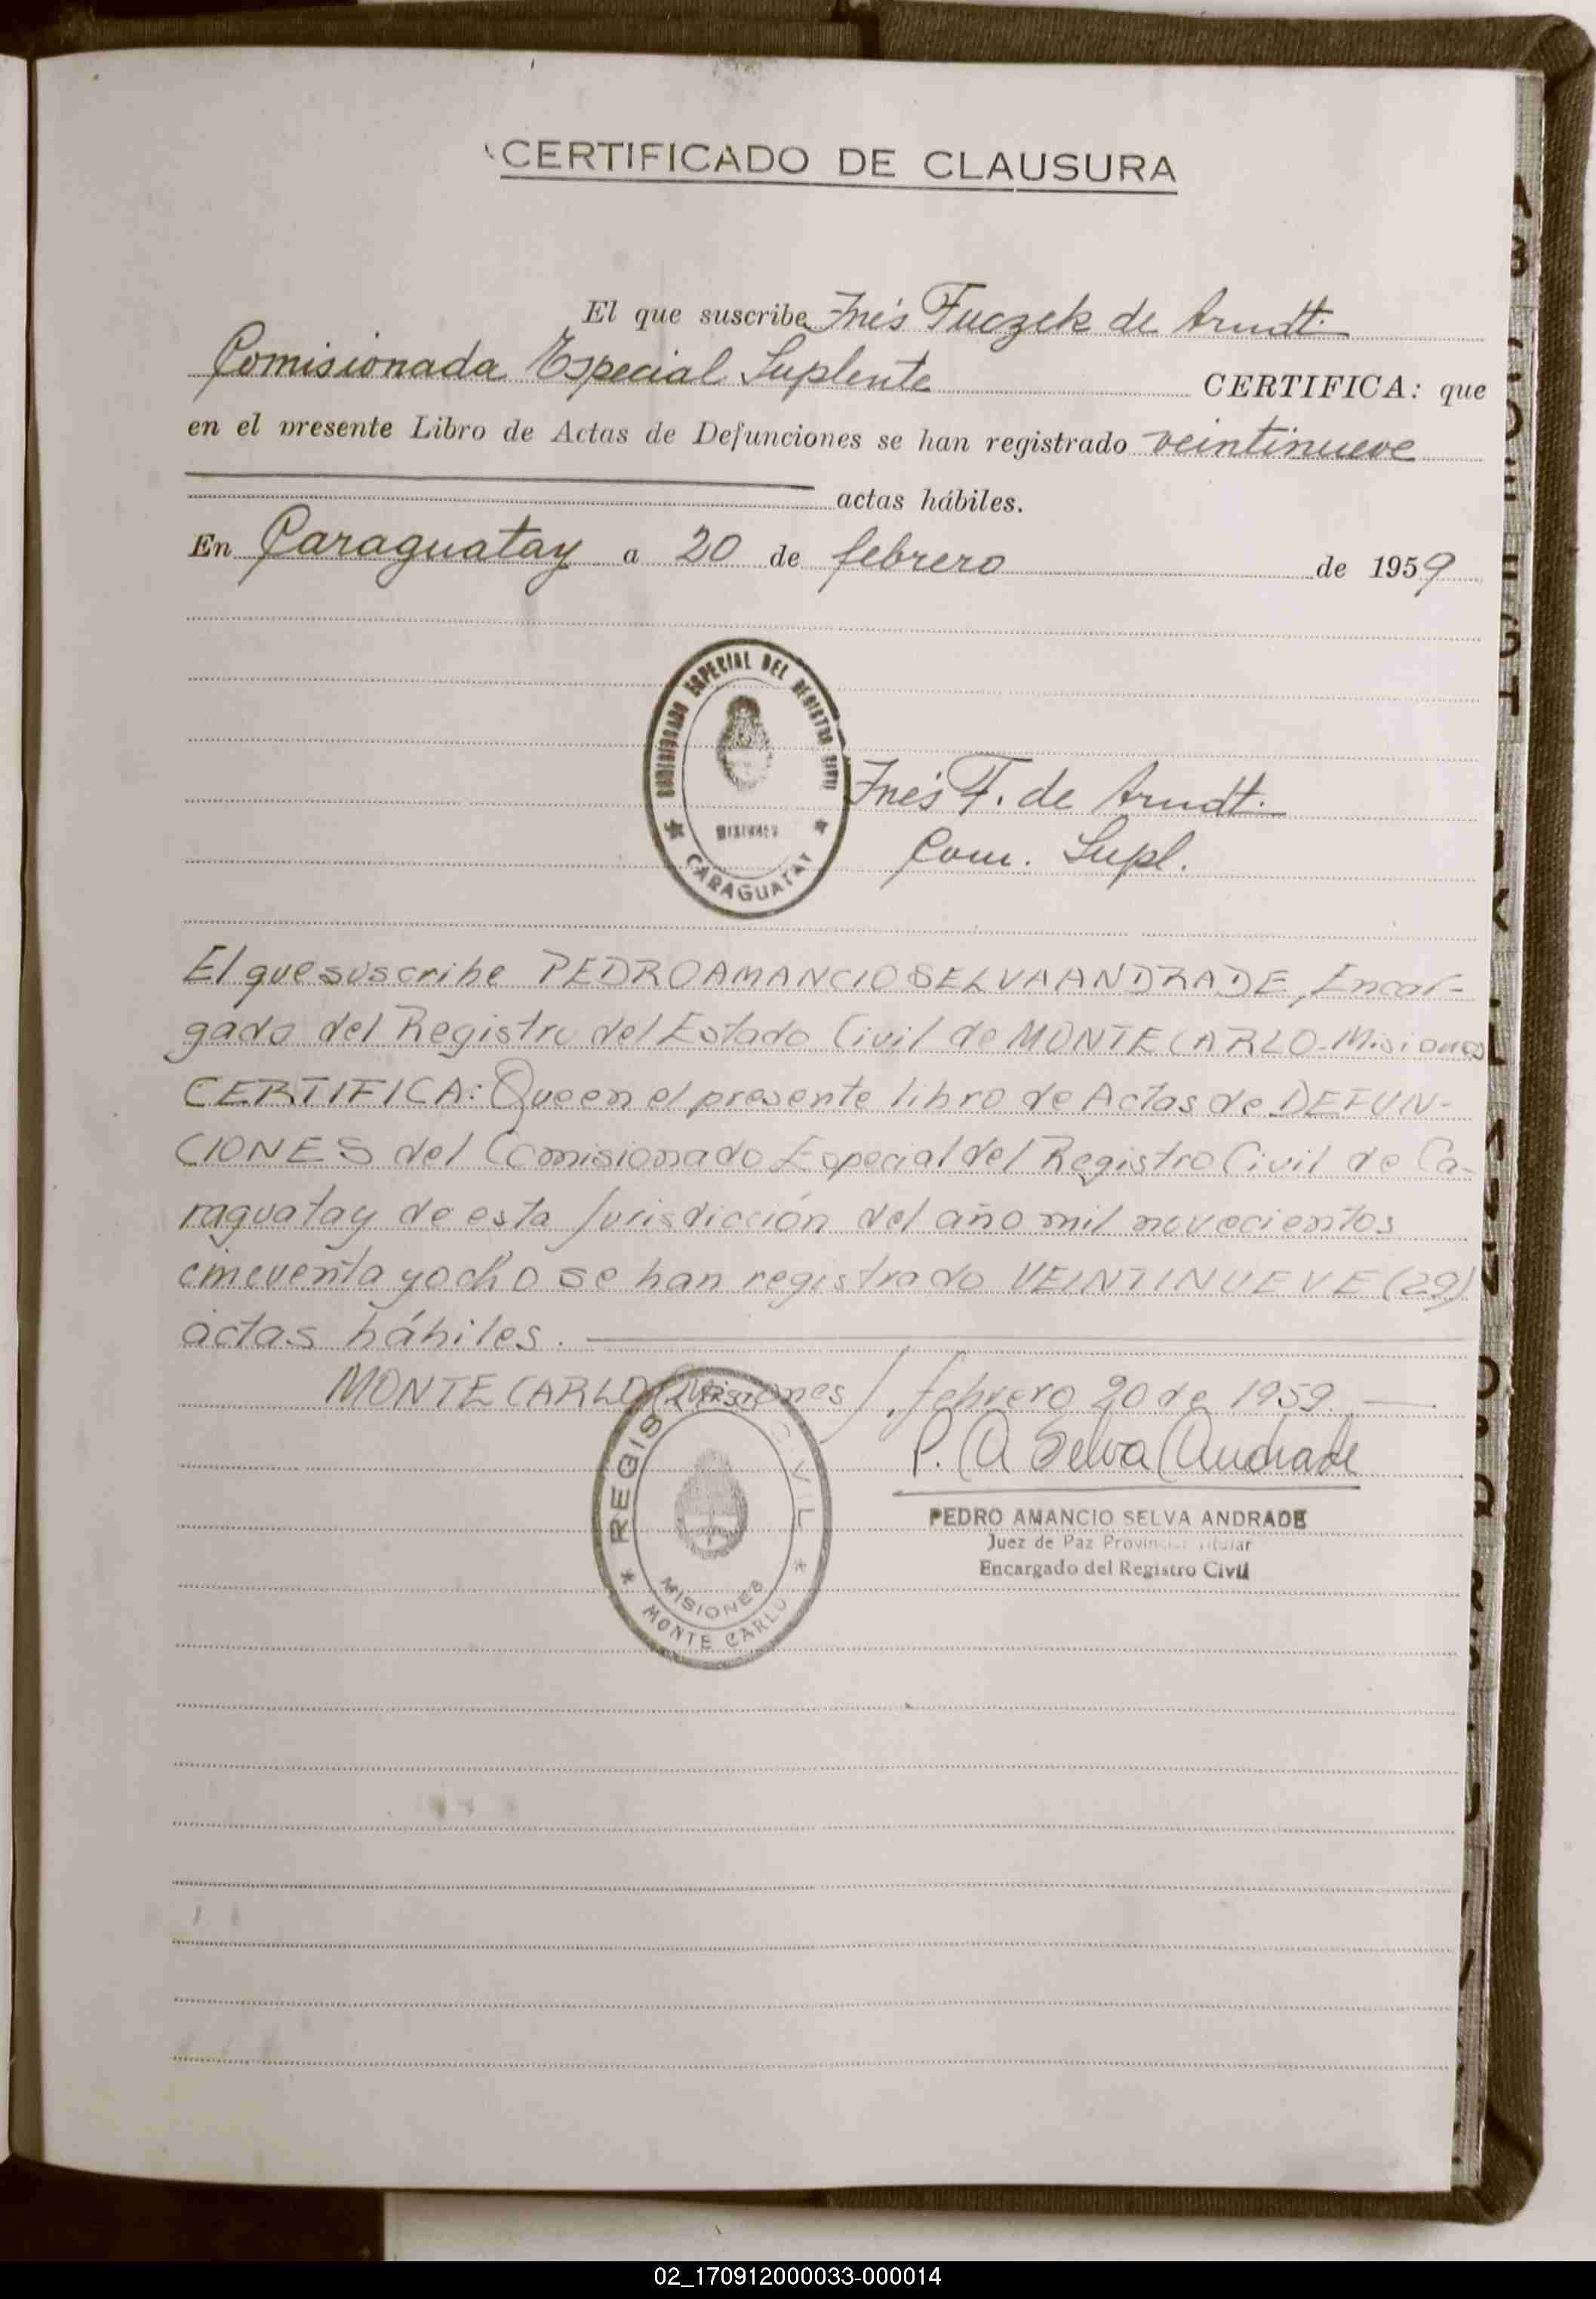 CERTIFICADO DE CLAUSURA
El que suscribe Inés Fuczek de Arndt.
Comisionada Especial Suplente CERTIFICA: que
en el presente Libro de Actas de Defunciones se han registrado veintinueve
actas hábiles.
En Caraguatay a 20 de febrero de 1959
COMISIONADO ESPECIAL DEL REGISTRO CIVIL
MISIONES
CARAGUATAY
Inés F. de Arndt.
Com. Supl.
El que suscribe PEDRO AMANCIO SELVA ANDRADE, Encar-
gado del Registro del Estado Civil de MONTECARLO-Misiones
CERTIFICA: Que en el presente libro de Actas de DEFUN-
CIONES del Comisionado Especial del Registro Civil de Ca-
raguatay de esta Jurisdicción del año mil novecientos
cincuenta y ocho se han registrado VEINTINUEVE (29)
actas hábiles.
MONTECARLO (Misiones), febrero 20 de 1959.
P. A Selva Andrade
REGIS CIVIL
MISIONES
MONTE CARLO
PEDRO AMANCIO SELVA ANDRADE
Juez de Paz Provincial Titular
Encargado del Registro Civil
02_170912000033-000014